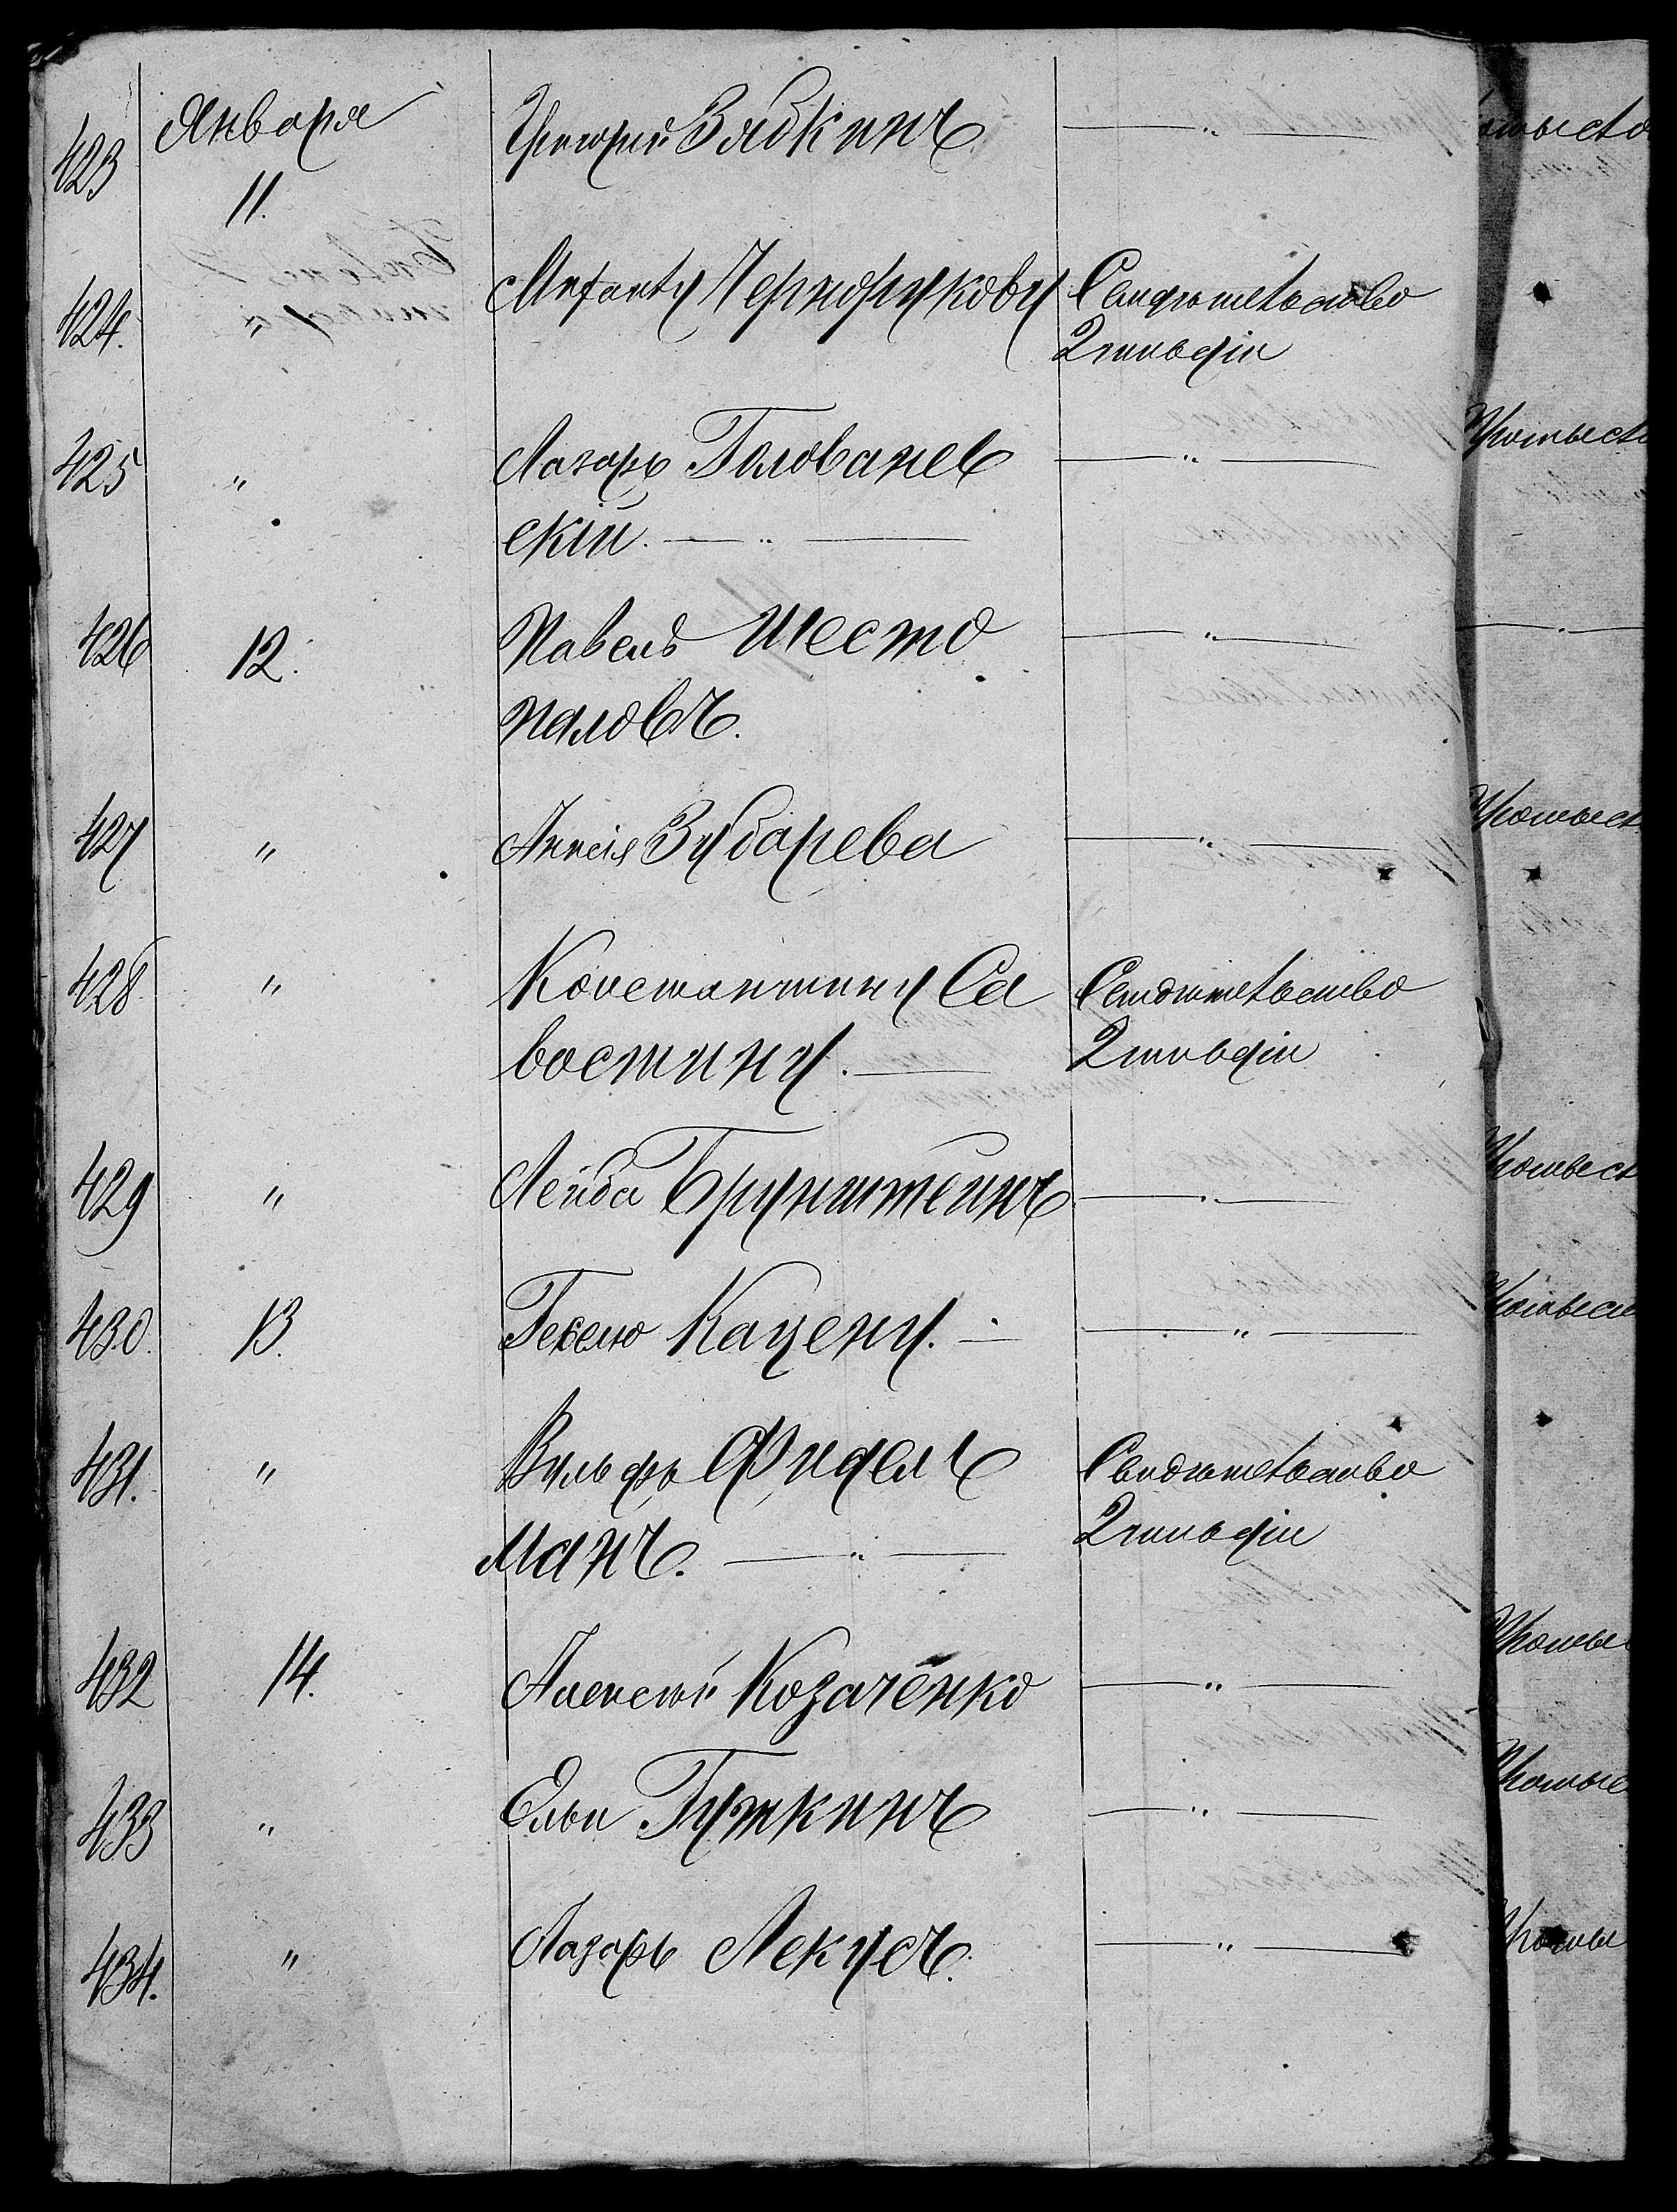 423 Января Григорий Зябкинъ — " —
11.
424. " Михаилу Чернорукову Свидѣтельство
2 гильдіи
425 " Лазарь Головчиев
скій. — " —
426 12. Павелъ Шесто — " —
паловъ.
427 " Анисія Зубарева — " —
428 " Константину Са Свидѣтельство
востину. — 2 гильдіи
429 " Лейба Брунштейнъ — " —
430. 13. Гекелю Кацену. — — " —
431. " Вульфъ Фидель Свидѣтельство
манъ. — " — 2 гильдіи
432 14. Алексѣй Козаченко — " —
433 " Ельи Гуткинъ — " —
434. " Лазарь Лекусъ. — " —